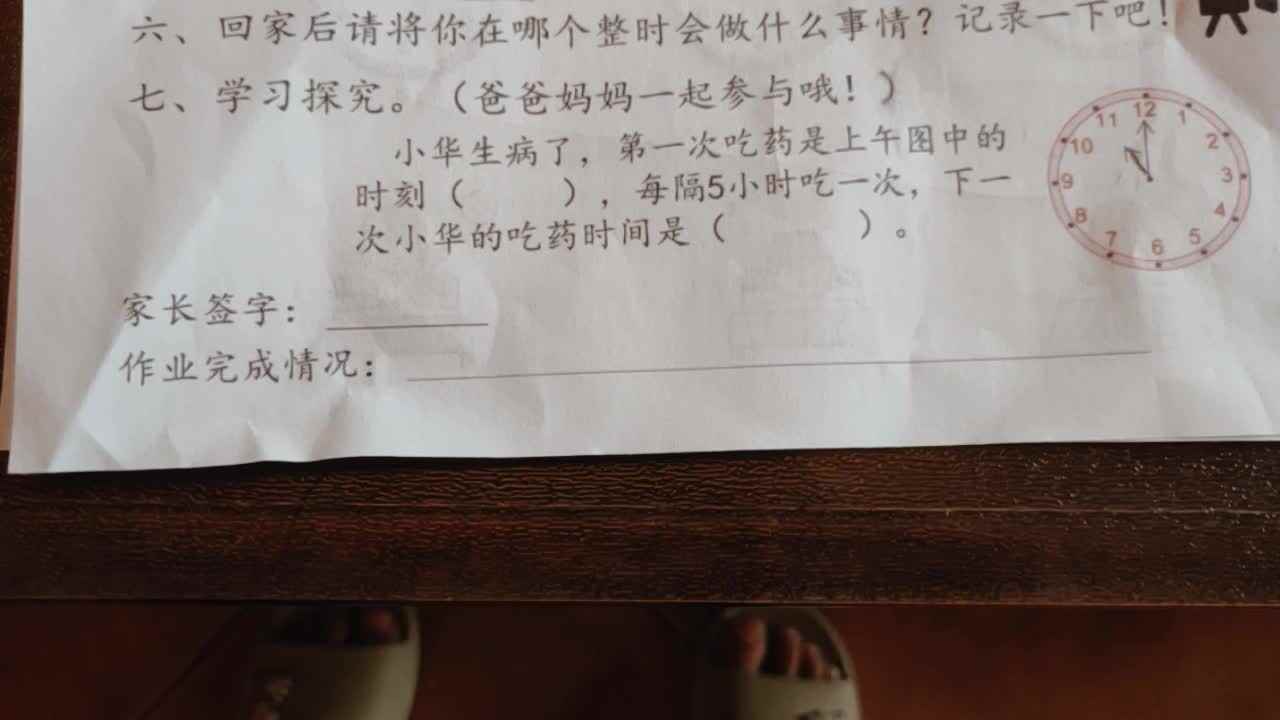 六、回家后请将你在哪个整时会做什么事情？记录一下吧！
七、学习探究。（爸爸妈妈一起参与哦！）
小华生病了，第一次吃药是上午图中的
时刻（　　），每隔5小时吃一次，下一
次小华的吃药时间是（　　）。
12
1
2
3
4
5
6
7
8
9
10
11
家长签字：
作业完成情况：